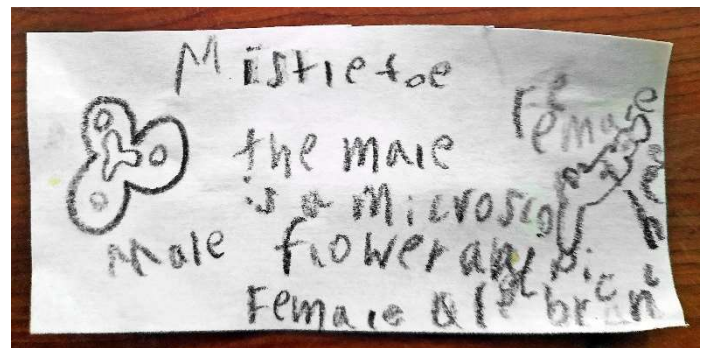 Mistletoe
Female
the male
is a Microscopic
Male flower and
Female